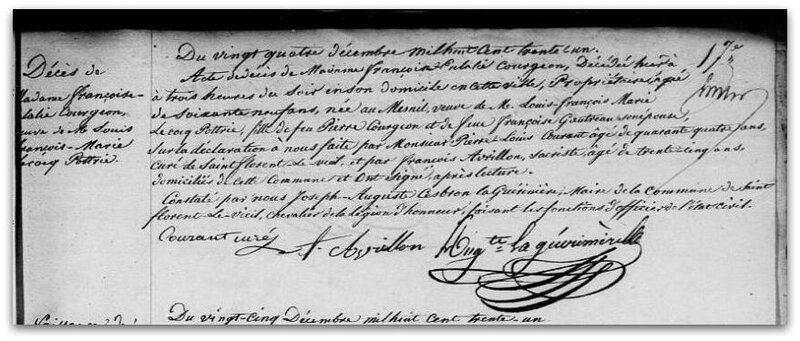 Du vingt quatre décembre mil huit Cent trente un.
Décès de
Madame françoise-
Eulalie Courgeon,
veuve de Mr Louis
françois-Marie
Lecoq Pottrie.
Acte de décès de Madame françoise-Eulalie Courgeon, Décédée hier à
à trois heures du Soir en son domicile en cette ville, Propriétaire, âgée
de Soixante neuf ans, née au Mesnil, veuve de M. Louis-françois Marie
Le coq Pottrie, fille de feu Pierre Courgeon et de feue françoise Gautreau son épouse,
Sur la déclaration à nous faite par Monsieur Pierre-Louis Courant âgé de quarante quatre ans,
curé de Saint florent le vieil, et par françois Avrillon, sacriste, âgé de trente cinq ans,
domiciliés de cette Commune et Ont Signé, après lecture.
Constaté par nous Joseph-August Cesbron la Guérinière, Maire de la commune de Saint
florent-Le-Vieil, chevalier de la légion d'honneur, faisant les fonctions d'officier de l'état civil.
Courant curé
f. Avrillon
17e
Du vingt-cinq Décembre mil huit Cent trente-un.